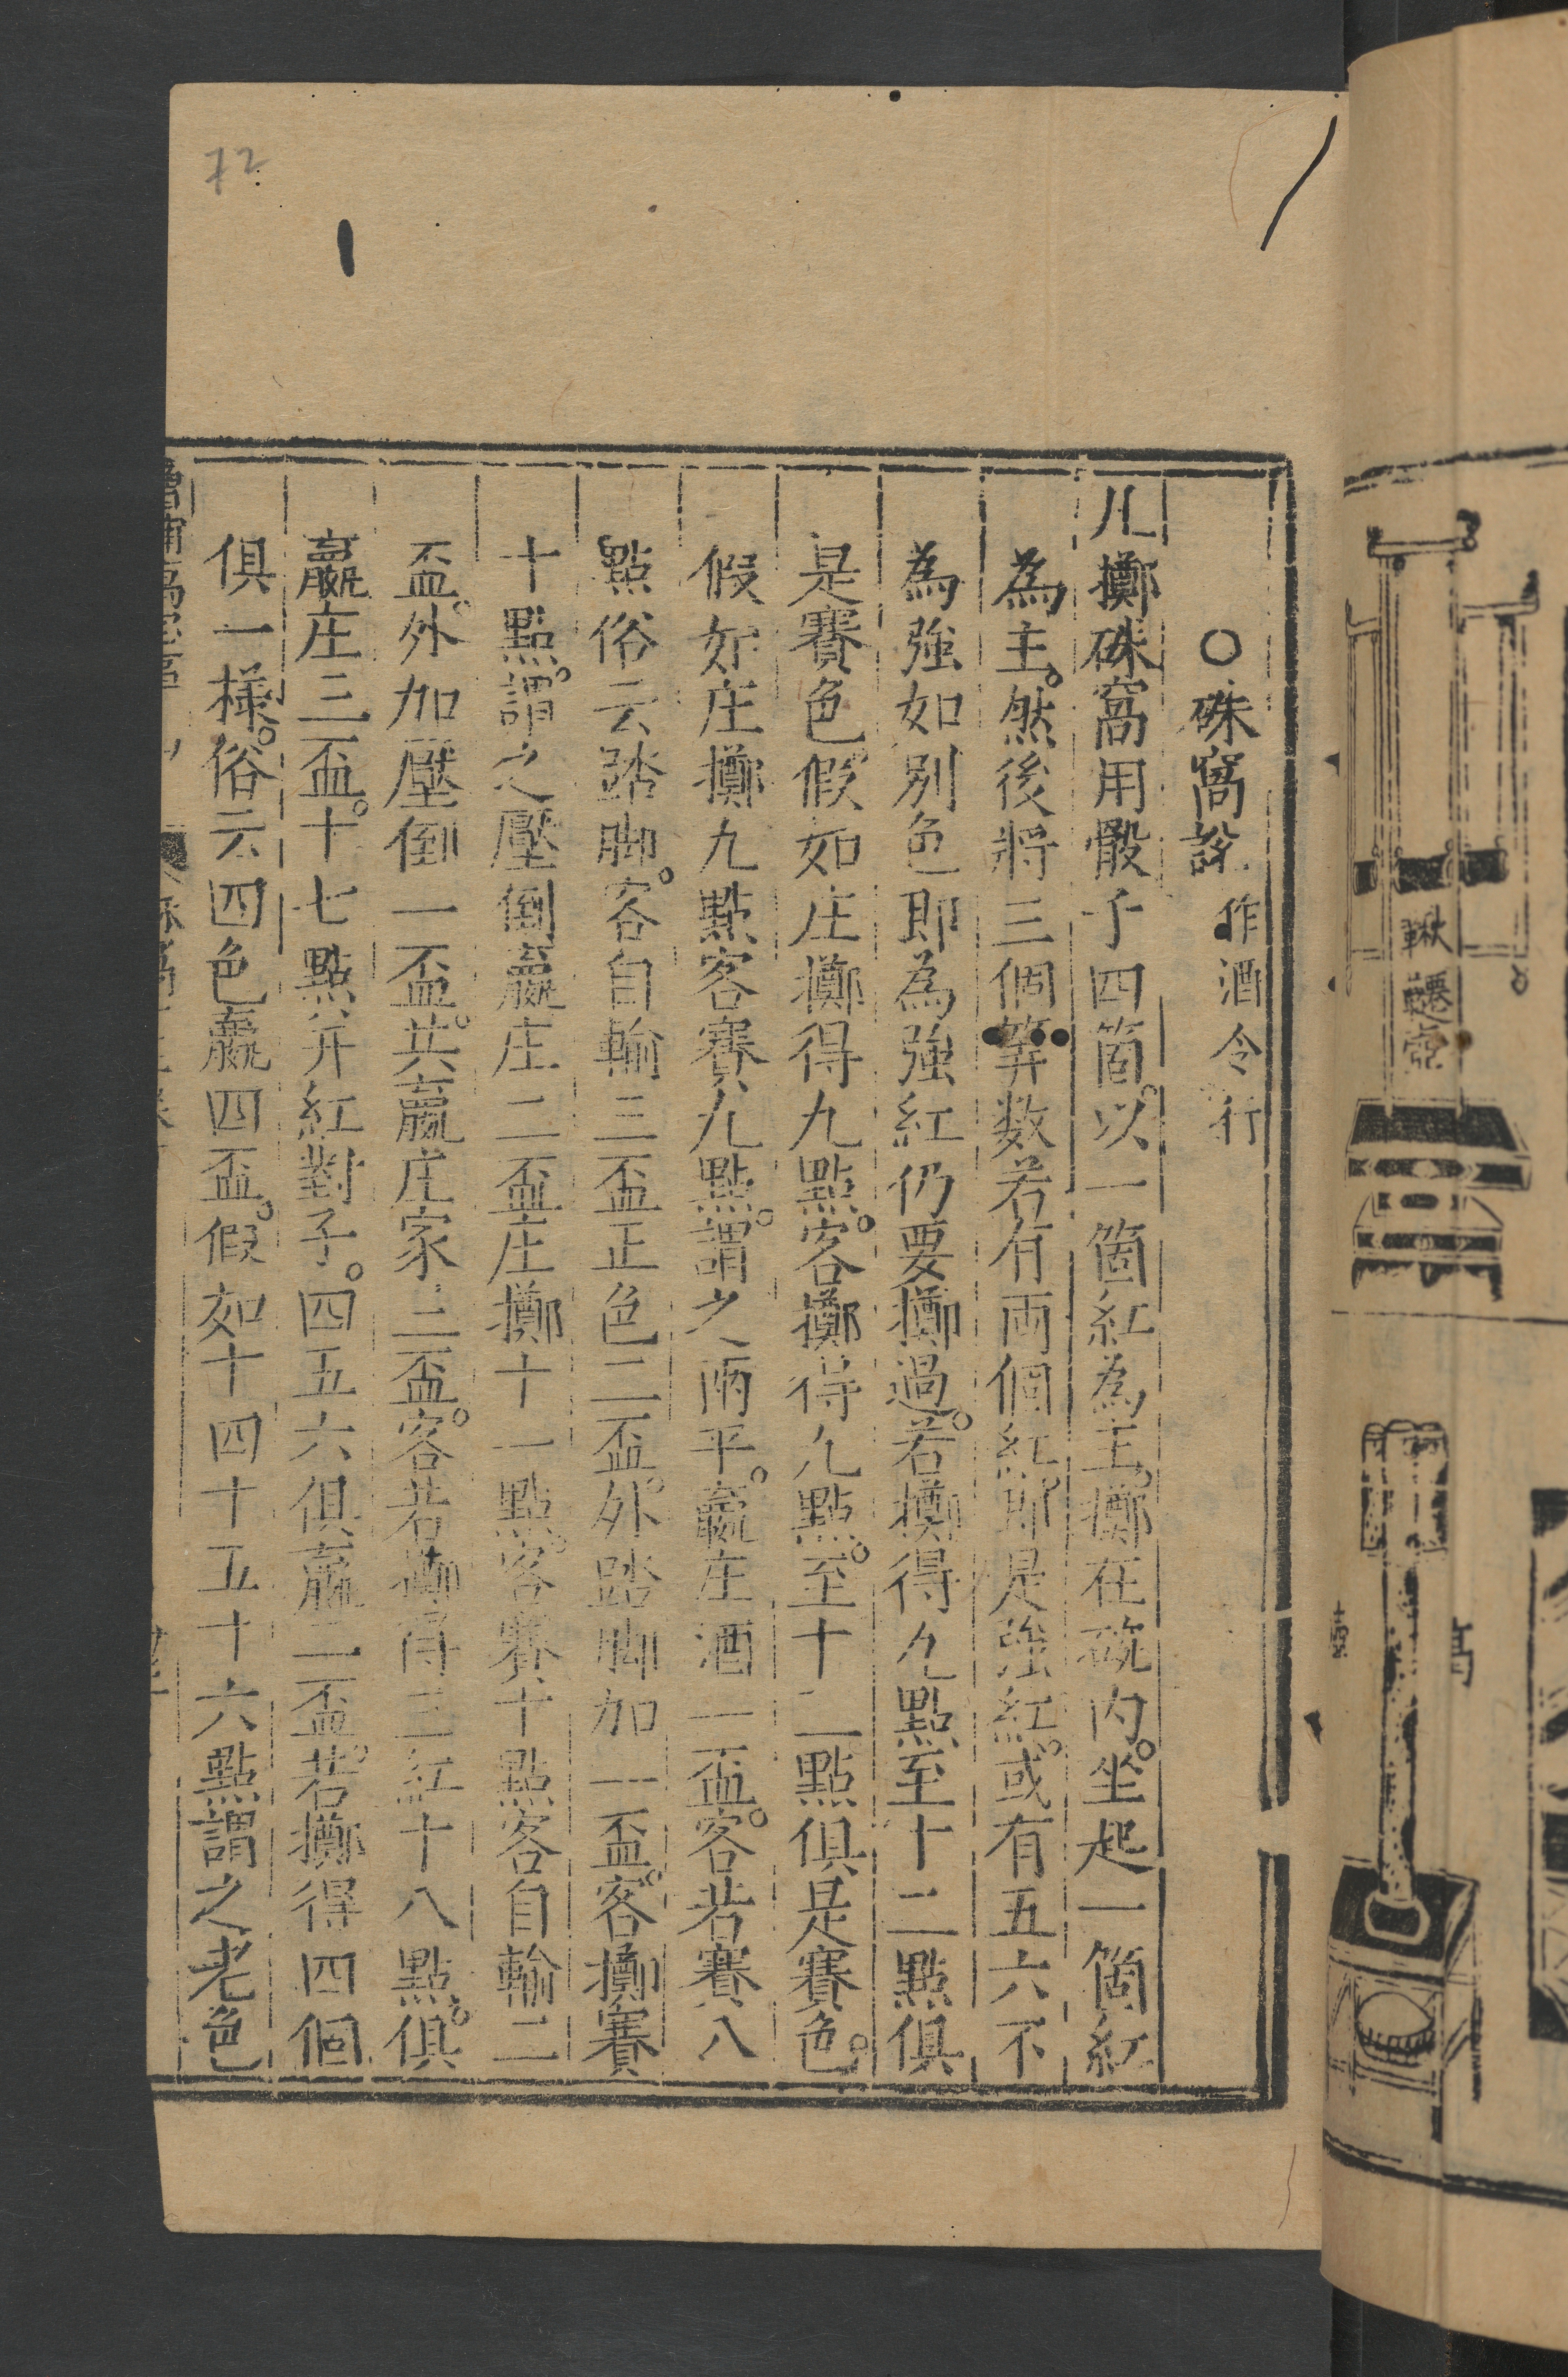 ○硃窩說 作酒令行
凡擲硃窩用骰子四箇。以一箇紅為主。擲在碗内。坐起一箇紅
為主。然後將三個筭数若有両個紅。即是強紅。或有五六不
為強如別色即為強紅仍要擲過。若擲得九點至十二點俱
是賽色。假如庄擲得九點。客擲得九點。至十二點俱是賽色。
假如庄擲九點客賽九點。謂之兩平。贏庄酒一盃。客若賽八
點俗云踏脚。客自輸三盃正色二盃。外踏脚加一盃。客擲賽
十點。謂之壓倒贏庄二盃庄擲十一點。客賽十點客自輸二
盃。外加壓倒一盃。共贏庄家三盃。客若擲得三紅十八點。俱
贏庄三盃。十七點并紅對子。四五六俱贏二盃。若擲得四個
俱一樣。俗云四色贏四盃。假如十四十五十六點謂之老色
鞦韆壺
72